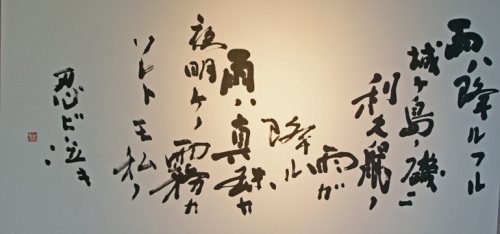 雨ハ降ルフル
城ヶ島ノ磯ニ
利久鼠ノ
雨ガ
降ル
雨ハ真珠カ
夜明ケノ
霧カ
ソレトモ私ノ
忍ビ泣キ